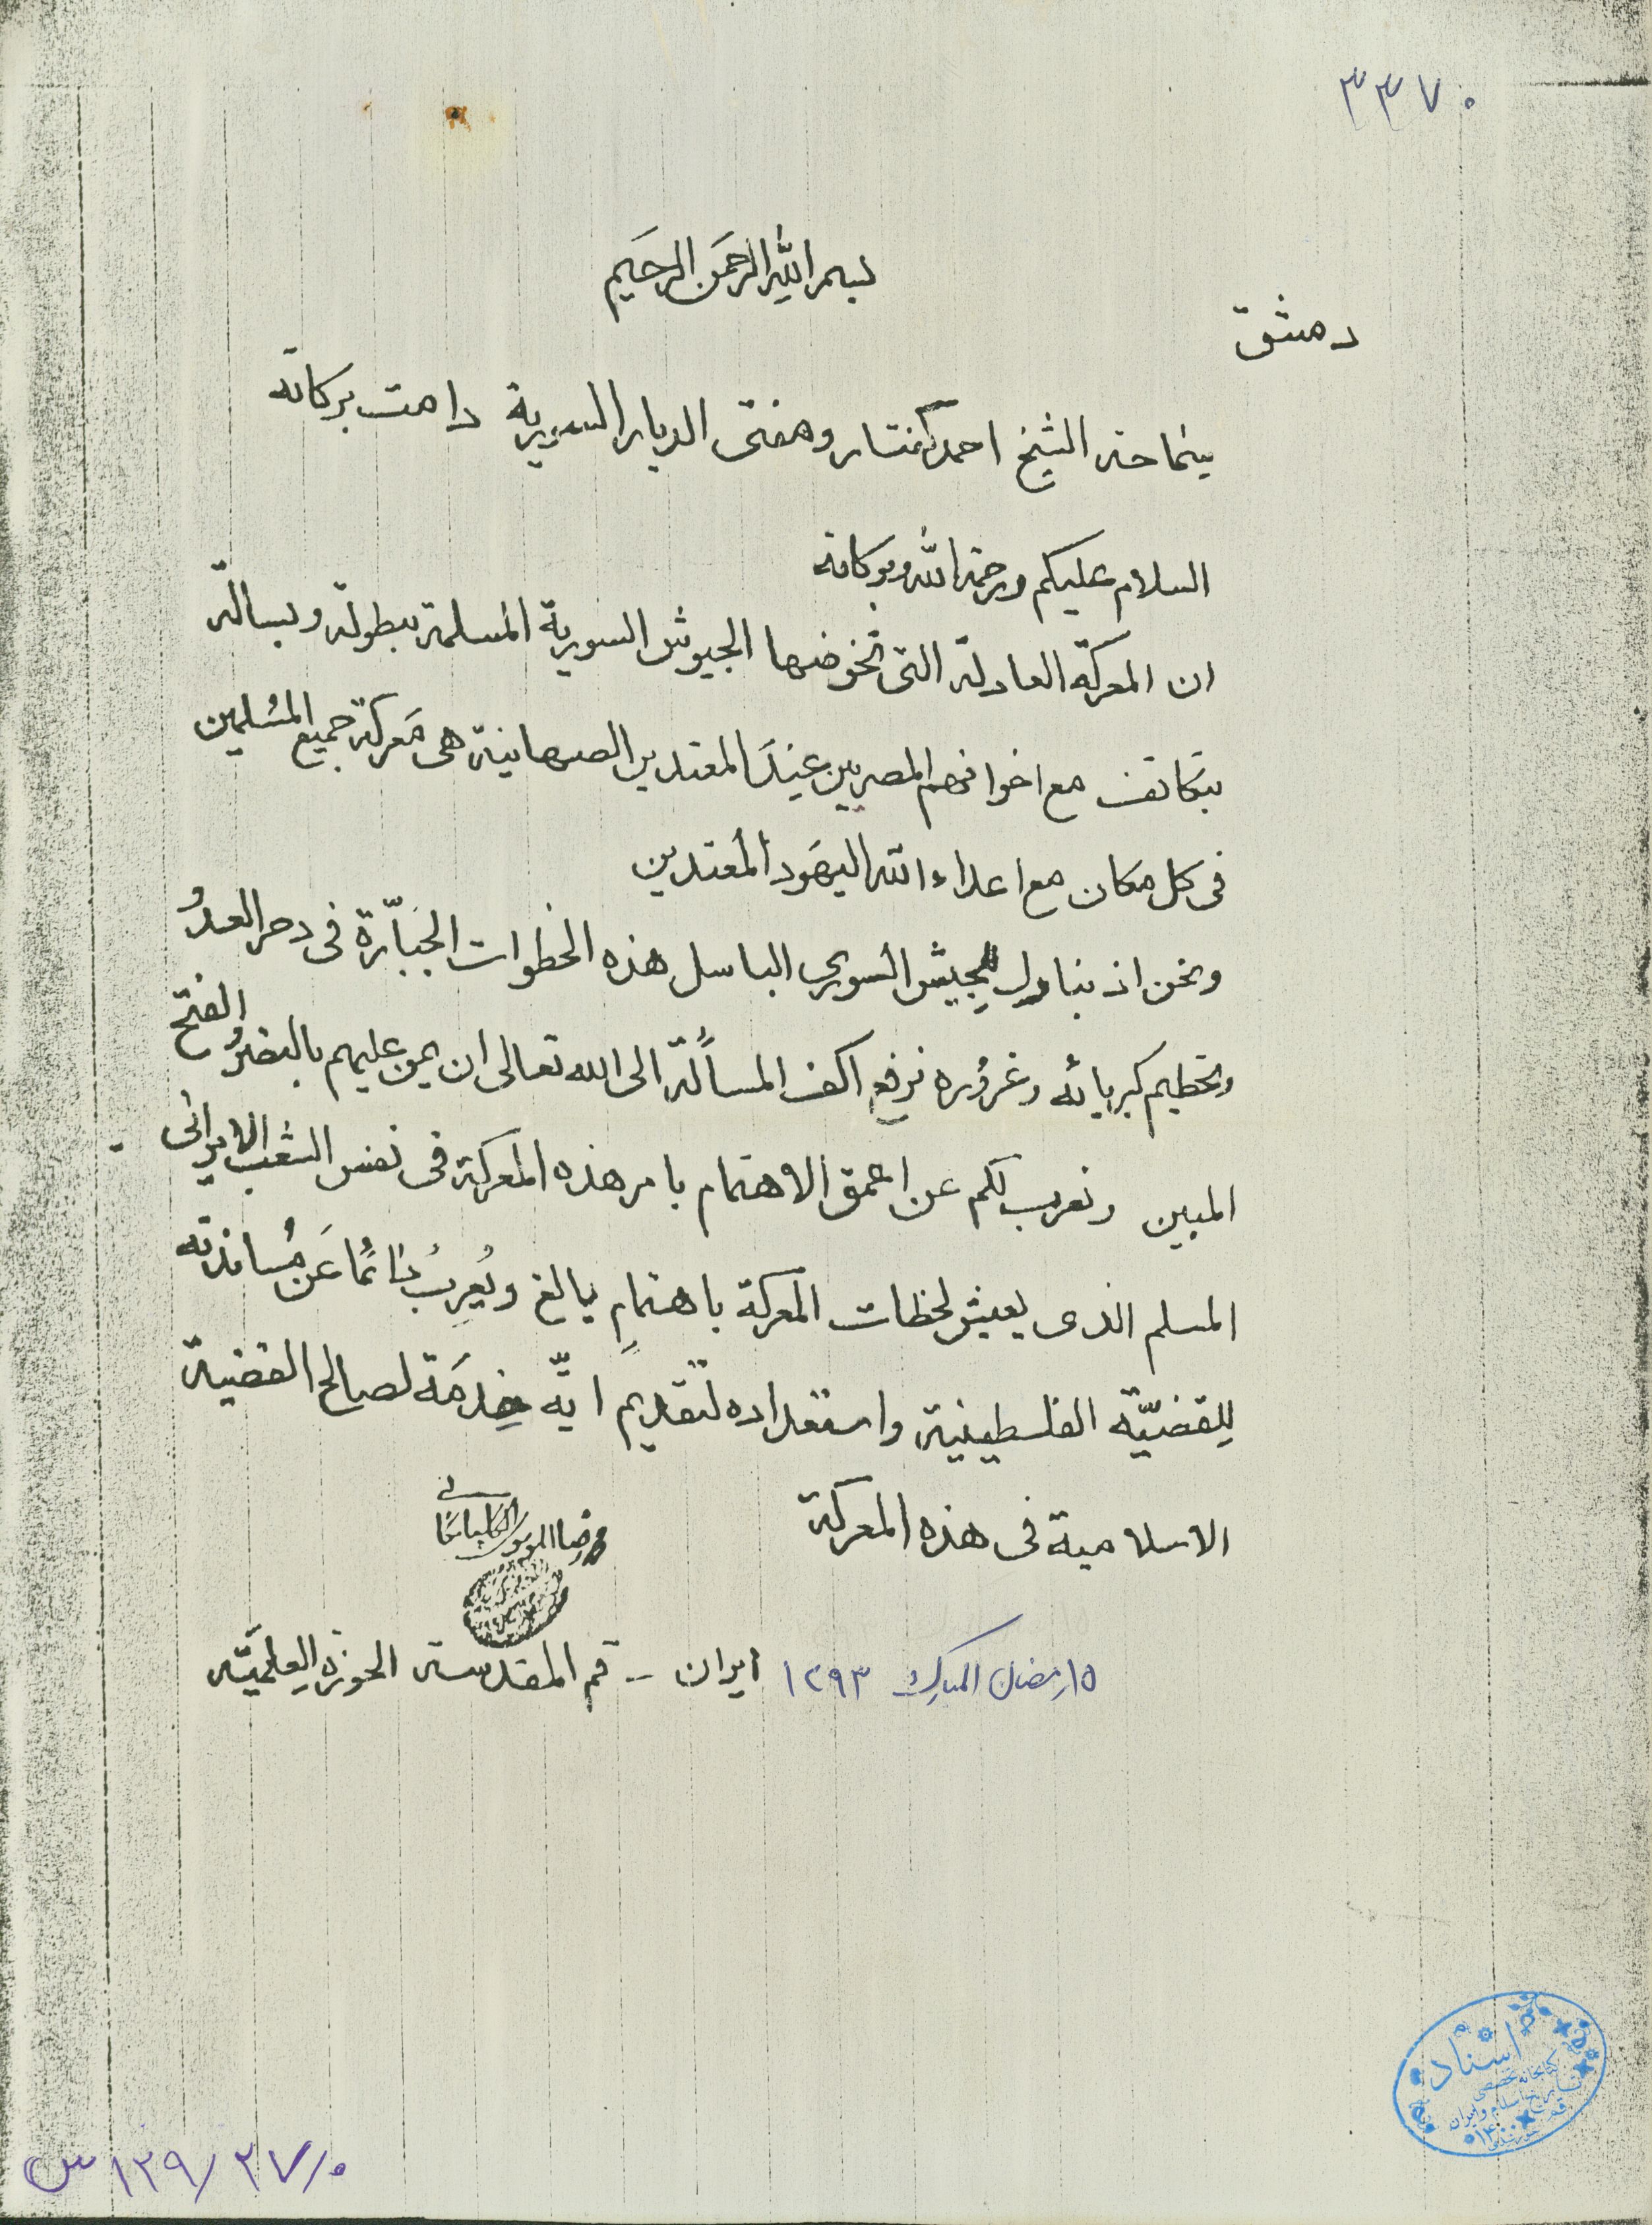 ۳۳۷۰
بسم الله الرحمن الرحیم
دمشق
سماحة الشیخ احمد کفتارو مفتی الدیار السوریة دامت برکاته
السلام علیکم ورحمة الله وبرکاته
ان المعرکة العادلة التی تخوضها الجیوش السوریة المسلمة ببطولة وبسالة
بتکاتف مع اخوانهم المصریین عند المعتدین الصهاینة هی مَعرکة جمیع المسُلمین
فی کل مکان مع اعداء الله الیهَود المعتدین
ونحن اذ نبارک للجیش السوری الباسل هذه الخطوات الجبّارة فی دحر العدوُ
وتحطیم کبریائه وغروُره نرفع اکف المسألة الی الله تعالی ان یمن علیهم بالنصرُ والفتح
المبین ونعرب لکم عن اعمق الاهتمام بامر هذه المعرکة فی نفس الشعب الایرانی
المسلم الذی یعیش لحظات المعرکة باهتمامٍ بالغ ویُعرِبُ دٰائمًا عَن مُساندته
لِلقضیّة الفلسطینیة واستعداده لتقدیمِ ایّة خِدمَة لصالح القضیة
الاسلامیة فی هذه المعرکة
محمدرضا الموسوی الگلپایگانی
۱۵ رمضان المبارک ۱۲۹۳ ایران – قم المقدسة الحوزة العِلمیَّة
اسناد
کتابخانه تخصصی
تاریخ اسلام و ایران
قم
۱۲۹/۲۷/۰ س